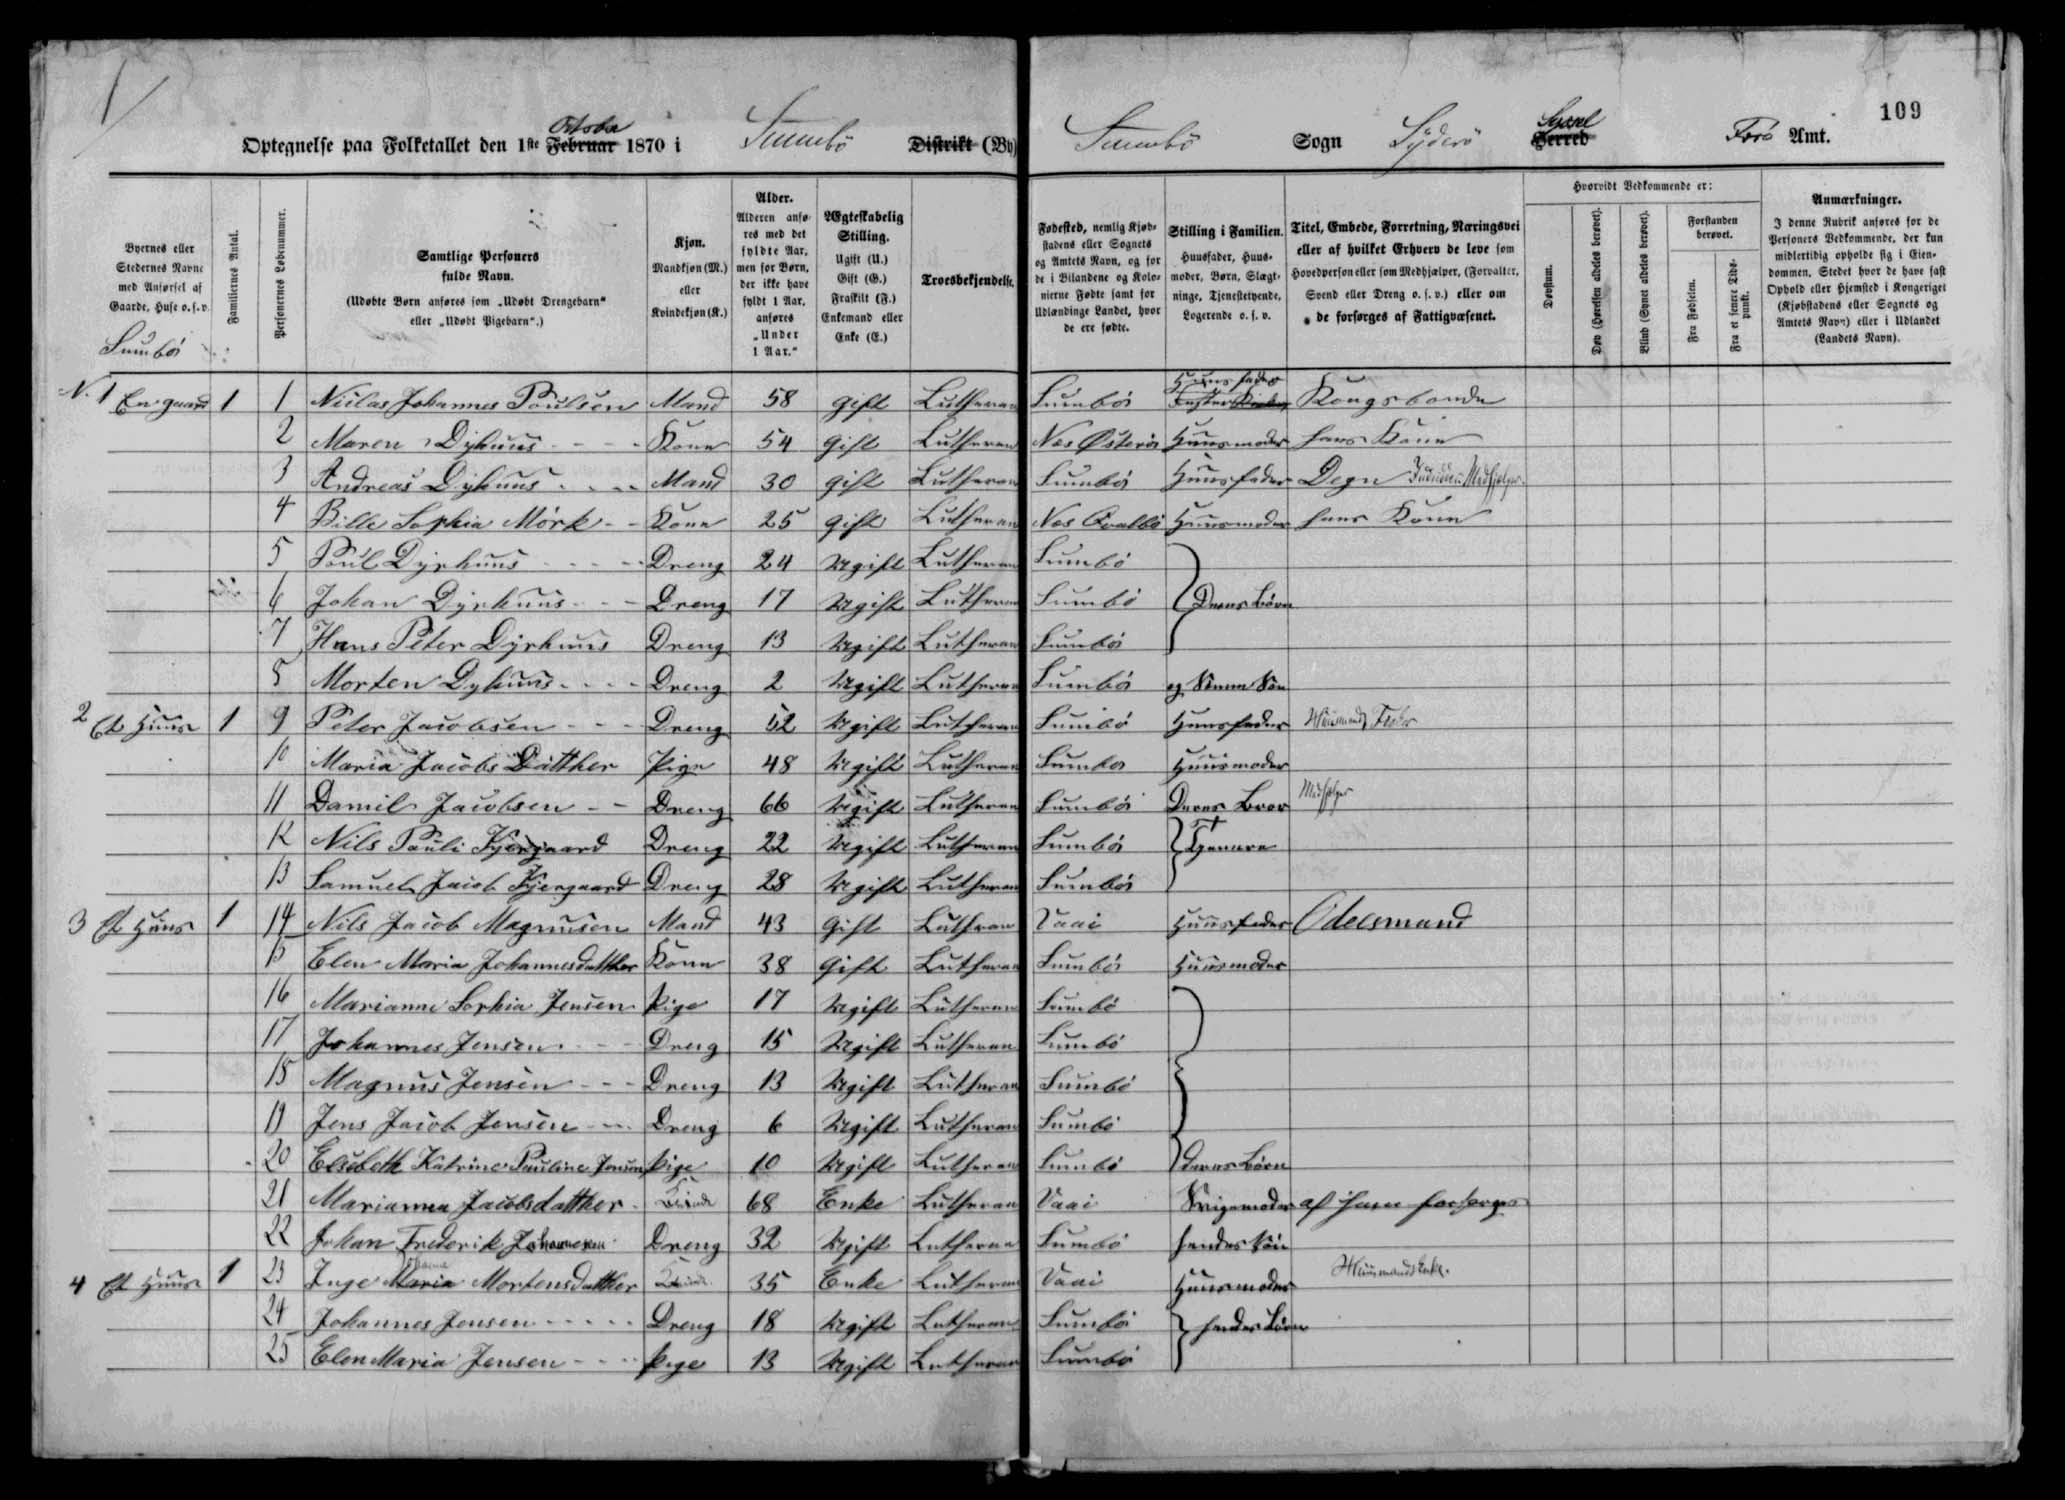 109
Optegnelse paa Folketallet den 1ste Februar Octobr 1870 i Sumbö Distrikt (By) Sumbö Sogn Syderö Herred Syssel Forö Amt.
Byernes eller Stedernes Navne med Anførsel af Gaarde, Huse o. s. v.
Sumbö
Familiernes Antal.
Personernes Løbenummer.
Samtlige Personers fulde Navn.
(Udøbte Børn anføres som „Udøbt Drengebarn“ eller „Udøbt Pigebarn“.)
Kjøn.
Mandkjøn (M.) eller Kvindekjøn (K.)
Alder.
Alderen anføres med det fyldte Aar, men for Børn, der ikke have fyldt 1 Aar, anføres „Under 1 Aar.“
Ægteskabelig Stilling.
Ugift (U.) Gift (G.) Fraskilt (F.) Enkemand eller Enke (E.)
Troesbekjendelse.
Fødested, nemlig Kjøbstadens eller Sognets og Amtets Navn, og for de i Bilandene og Kolonierne Fødte samt for Udlændinge Landet, hvor de ere fødte.
Stilling i Familien.
Huusfader, Huusmoder, Børn, Slægtninge, Tjenestetyende, Logerende o. s. v.
Titel, Embede, Forretning, Næringsvei eller af hvilket Erhverv de leve som Hovedperson eller som Medhjælper, (Forvalter, Svend eller Dreng o. s. v.) eller om de forsørges af Fattigvæsenet.
Hvorvidt Vedkommende er:
Døvstum.
Døv (Hørelsen aldeles berøvet).
Blind (Synet aldeles berøvet).
Forstanden berøvet.
Fra Fødselen.
Fra et senere Tidspunkt.
Anmærkninger.
I denne Rubrik anføres for de Personers Vedkommende, der kun midlertidig opholde sig i Eiendommen, Stedet hvor de have fast Ophold eller Hjemsted i Kongeriget (Kjøbstadens eller Sognets og Amtets Navn) eller i Udlandet (Landets Navn).
N. 1 En gaard 1 1 Niclas Johannes Poulsen Mand 58 gift Lutheran Sumbö Huusfader Kongsbonde
2 Maren Dyhuus Kone 54 gift Lutheran Nes Österö Huusmoder hans Kone
3 Andreas Dyhuus Mand 30 gift Lutheran Sumbö Huusfader Degn Medhjelper
4 Bille Sophia Mörk Kone 25 gift Lutheran Nes Qvalbö Huusmoder hans Kone
5 Poul Dyrhuus Dreng 24 Ugift Lutheran Sumbö
6 Johan Dyrhuus Dreng 17 Ugift Lutheran Sumbö Deres börn
7 Hans Peter Dyrhuus Dreng 13 Ugift Lutheran Sumbö
8 Morten Dyhuus Dreng 2 Ugift Lutheran Sumbö
2 Et Huus 1 9 Peter Jacobsen Dreng 52 Ugift Lutheran Sumbö Huusfader Huusmand Fisker
10 Maria Jacobs Datther Pige 48 Ugift Lutheran Sumbö Huusmoder
11 Daniel Jacobsen Dreng 66 Ugift Lutheran Sumbö Deres Bror Medhjelper
12 Nils Pauli Kjergaard Dreng 22 Ugift Lutheran Sumbö Tjenere
13 Samuel Jacob Kjergaard Dreng 28 Ugift Lutheran Sumbö
3 Et Huus 1 14 Nils Jacob Magnusen Mand 43 Gift Lutheran Vaai Huusfader Odelsmand
15 Elen Maria Johannesdatther Kone 38 Gift Lutheran Sumbö Huusmoder
16 Marianne Sophia Jensen Pige 17 Ugift Lutheran Sumbö
17 Johannes Jensen Dreng 15 Ugift Lutheran Sumbö
18 Magnus Jensen Dreng 13 Ugift Lutheran Sumbö
19 Jens Jacob Jensen Dreng 6 Ugift Lutheran Sumbö
20 Elsebeth Katrine Pauline Jensen Pige 10 Ugift Lutheran Sumbö deres börn
21 Marianna Jacobsdatther Kvinde 68 Enke Lutheran Vaai Svigemoder af ham forsörges
22 Johan Frederik Johannesen Dreng 32 Ugift Lutheran Sumbö hendes Sön
4 Et Huus 1 23 Inge Maria Mortensdatther Kvinde 35 Enke Lutheran Vaai Huusmoder Huusmands Enke.
24 Johannes Jensen Dreng 18 Ugift Lutheran Sumbö hendes börn
25 Elen Maria Jensen Pige 13 Ugift Lutheran Sumbö